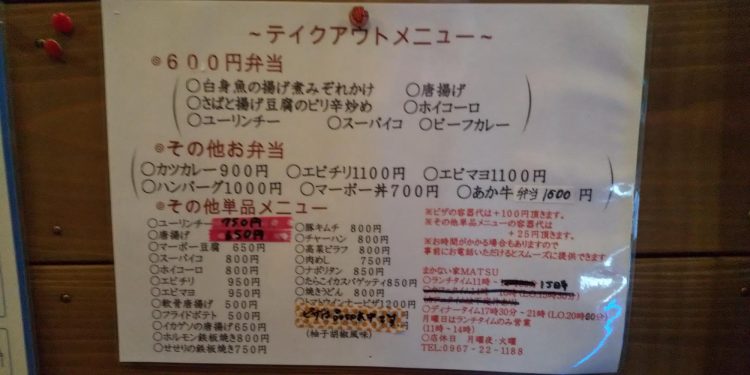 ～テイクアウトメニュー～
◎６００円弁当
○白身魚の揚げ煮みぞれかけ ○唐揚げ
○さばと揚げ豆腐のピリ辛炒め ○ホイコーロ
○ユーリンチー ○スーパイコ ○ビーフカレー
◎その他お弁当
○カツカレー９００円 ○エビチリ１１００円 ○エビマヨ１１００円
○ハンバーグ１０００円 ○マーボー丼７００円 ○あか牛弁当1500円
◎その他単品メニュー
○ユーリンチー 750円
○唐揚げ 650円
○マーボー豆腐 650円
○スーパイコ 800円
○ホイコーロ 800円
○エビチリ 950円
○エビマヨ 950円
○軟骨唐揚げ 500円
○フライドポテト 500円
○イカゲソの唐揚げ650円
○ホルモン鉄板焼き800円
○せせりの鉄板焼き750円
○豚キムチ 800円
○チャーハン 800円
○高菜ピラフ 800円
○肉めし 750円
○ナポリタン 850円
○たらこイカスパゲッティ850円
○焼きうどん 800円
○トマトウインナーピザ1200円
(柚子胡椒風味)
※ピザの容器代は＋100円頂きます。
※その他単品メニューの容器代は
＋25円頂きます。
※お時間がかかる場合もありますので
事前にお電話いただけるとスムーズに提供できます。
まかない家MATSU
○ランチタイム11時～15時
○ディナータイム17時30分～21時(LO.20時30分)
月曜日はランチタイムのみ営業
(11時～14時)
○店休日 月曜夜・火曜
TEL:0967－22－1188